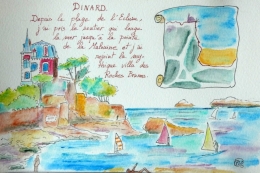 DINARD
Depuis la plage de l'Ecluse,
j'ai pris le sentier qui longe
la mer jusqu'à la pointe
de la Malouine et j'ai
rejoint la
villa des
Roches Brunes.